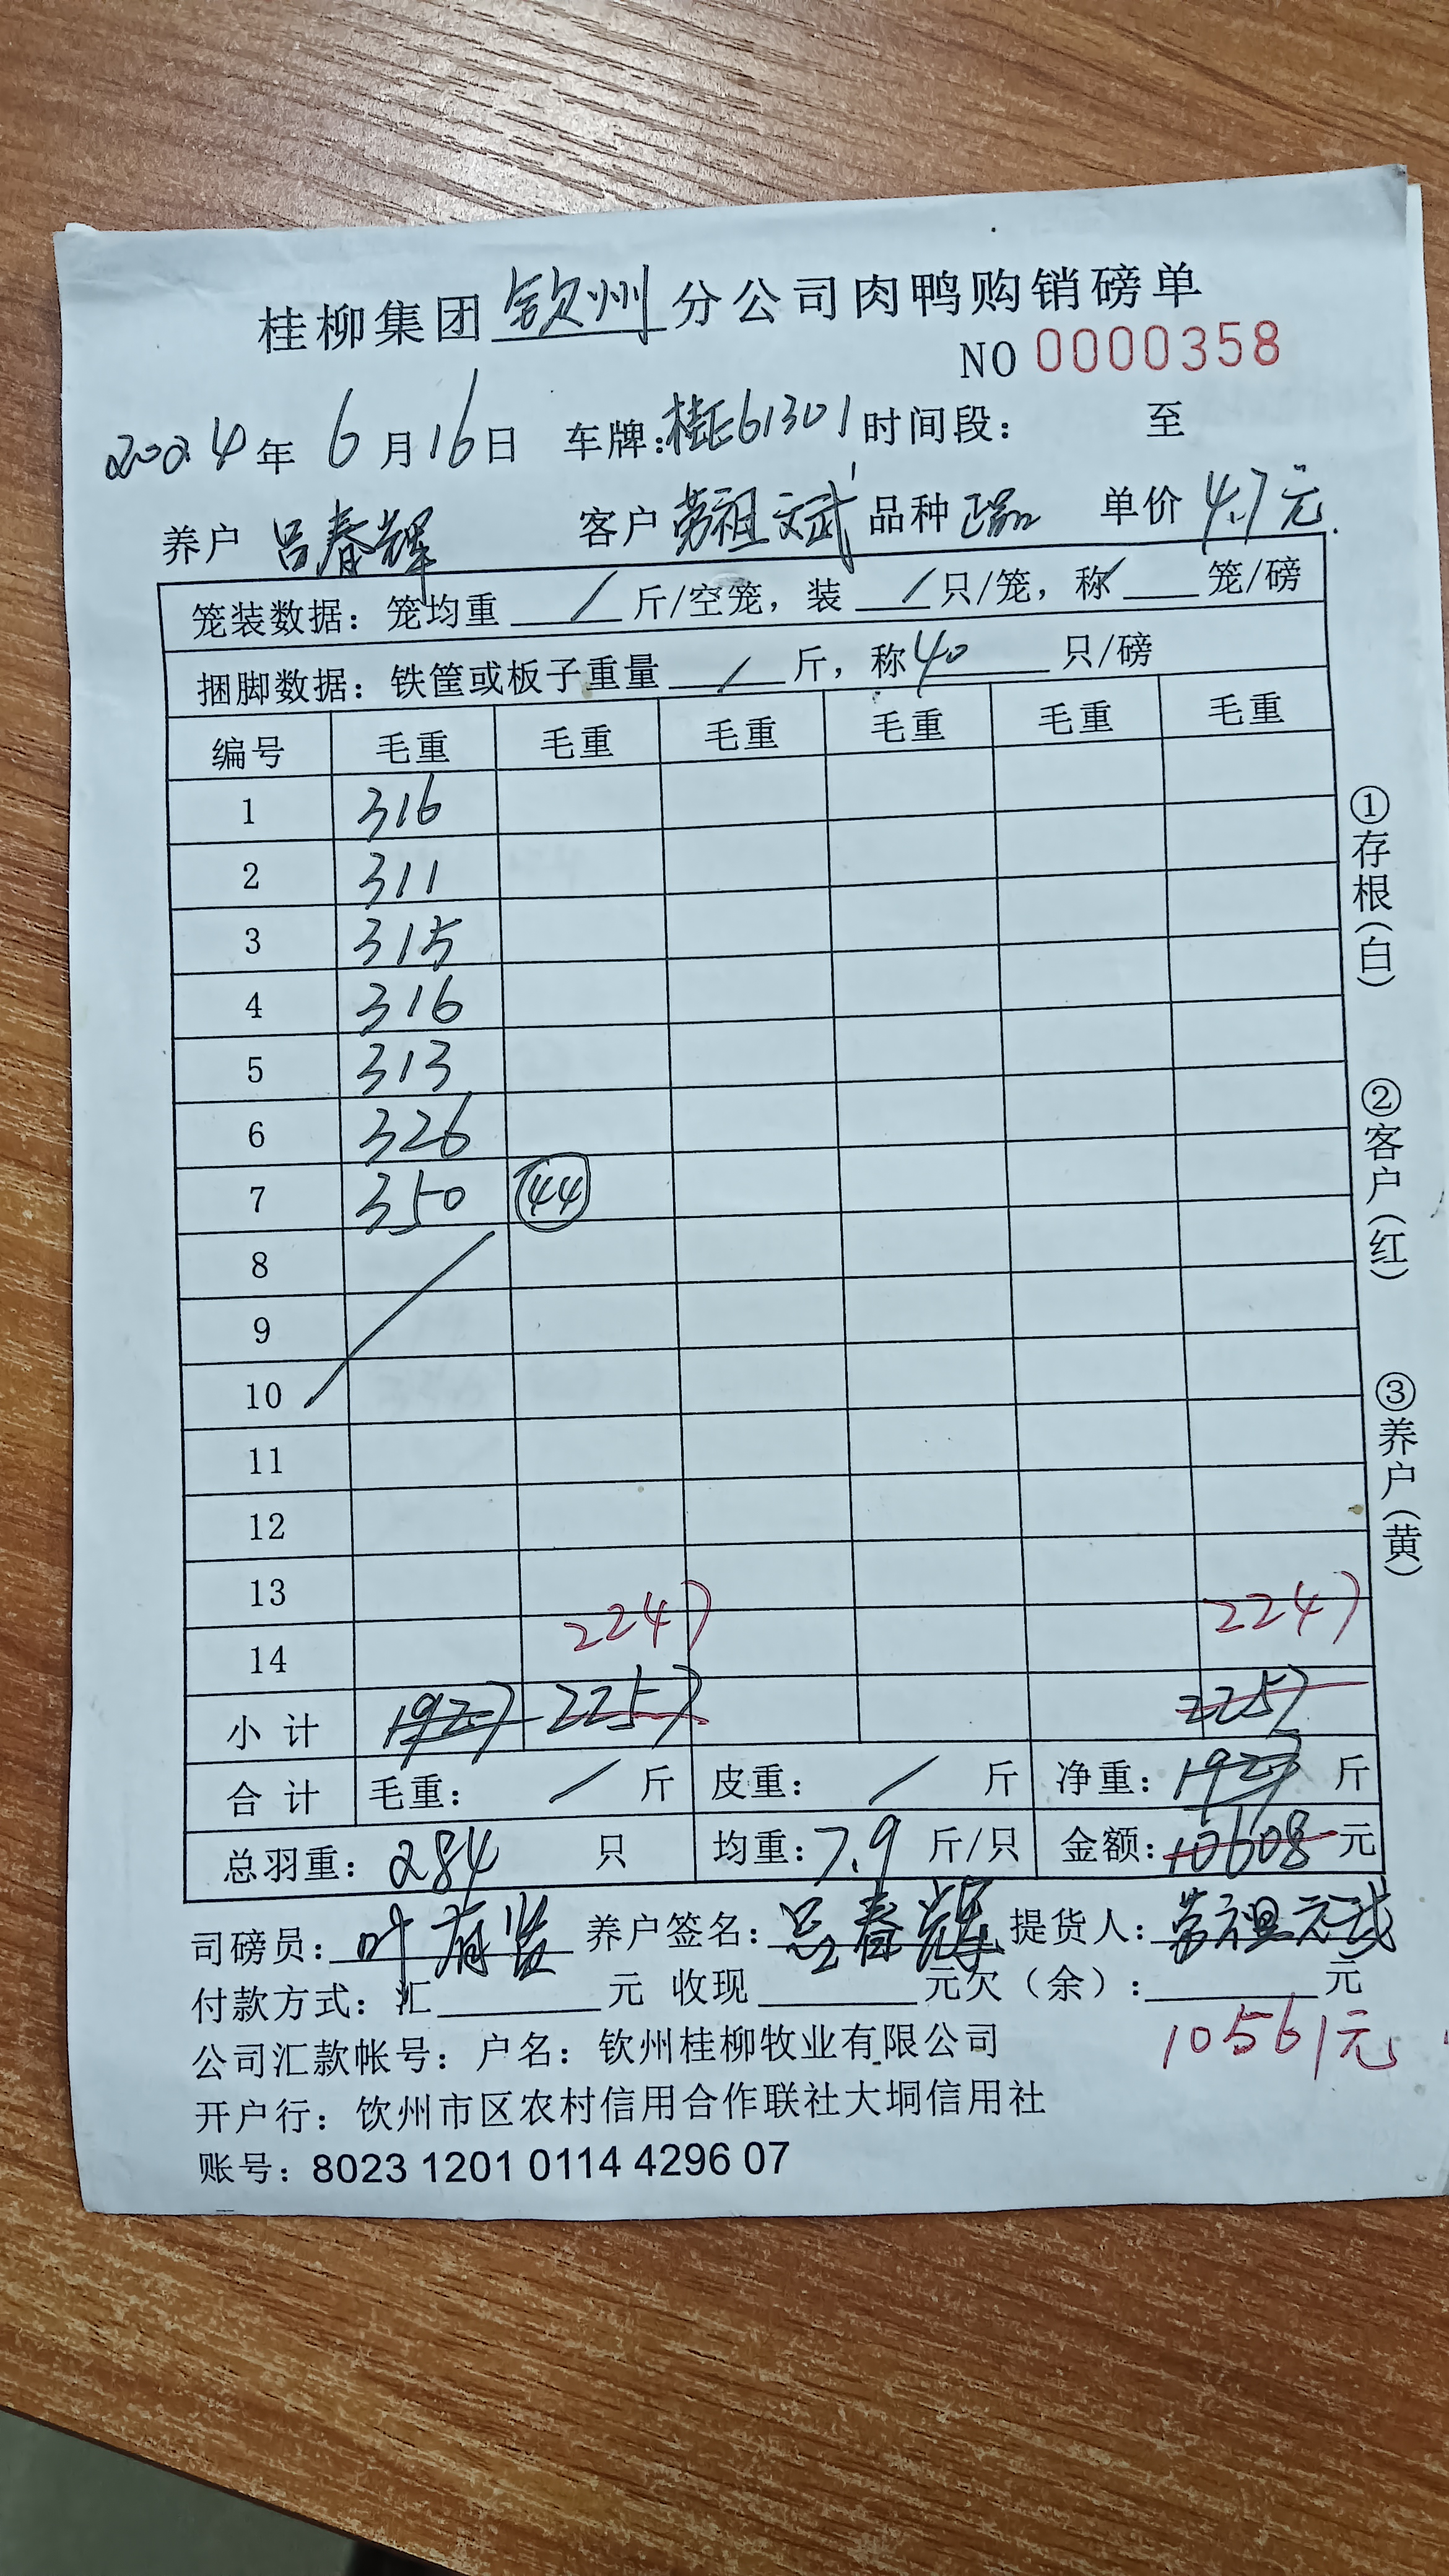 桂柳集团钦州分公司肉鸭购销磅单
NO 0000358
2024年6月16日 车牌:桂E61301时间段: 至
养户 吕春辉 客户 劳祖斌 品种 正品 单价 4.7元
笼装数据: 笼均重 / 斤/空笼, 装 / 只/笼, 称 / 笼/磅
捆脚数据: 铁筐或板子重量 / 斤, 称40 只/磅
编号 毛重 毛重 毛重 毛重 毛重 毛重
1 316
2 311
3 315
4 316
5 313
6 326
7 350 44
8
9
10
11
12
13
2247 2247
14
小计 1927 2257 2257
合计 毛重: / 斤 皮重: / 斤 净重: 1927 斤
总羽重: 284 只 均重: 7.9 斤/只 金额: 10608 元
司磅员: 叶 养户签名: 吕春辉 提货人: 劳祖斌
付款方式: 汇 元 收现 元欠(余): 元
10561元
公司汇款帐号: 户名: 钦州桂柳牧业有限公司
开户行: 钦州市区农村信用合作联社大垌信用社
账号: 8023 1201 0114 4296 07
①存根(白)
②客户(红)
③养户(黄)